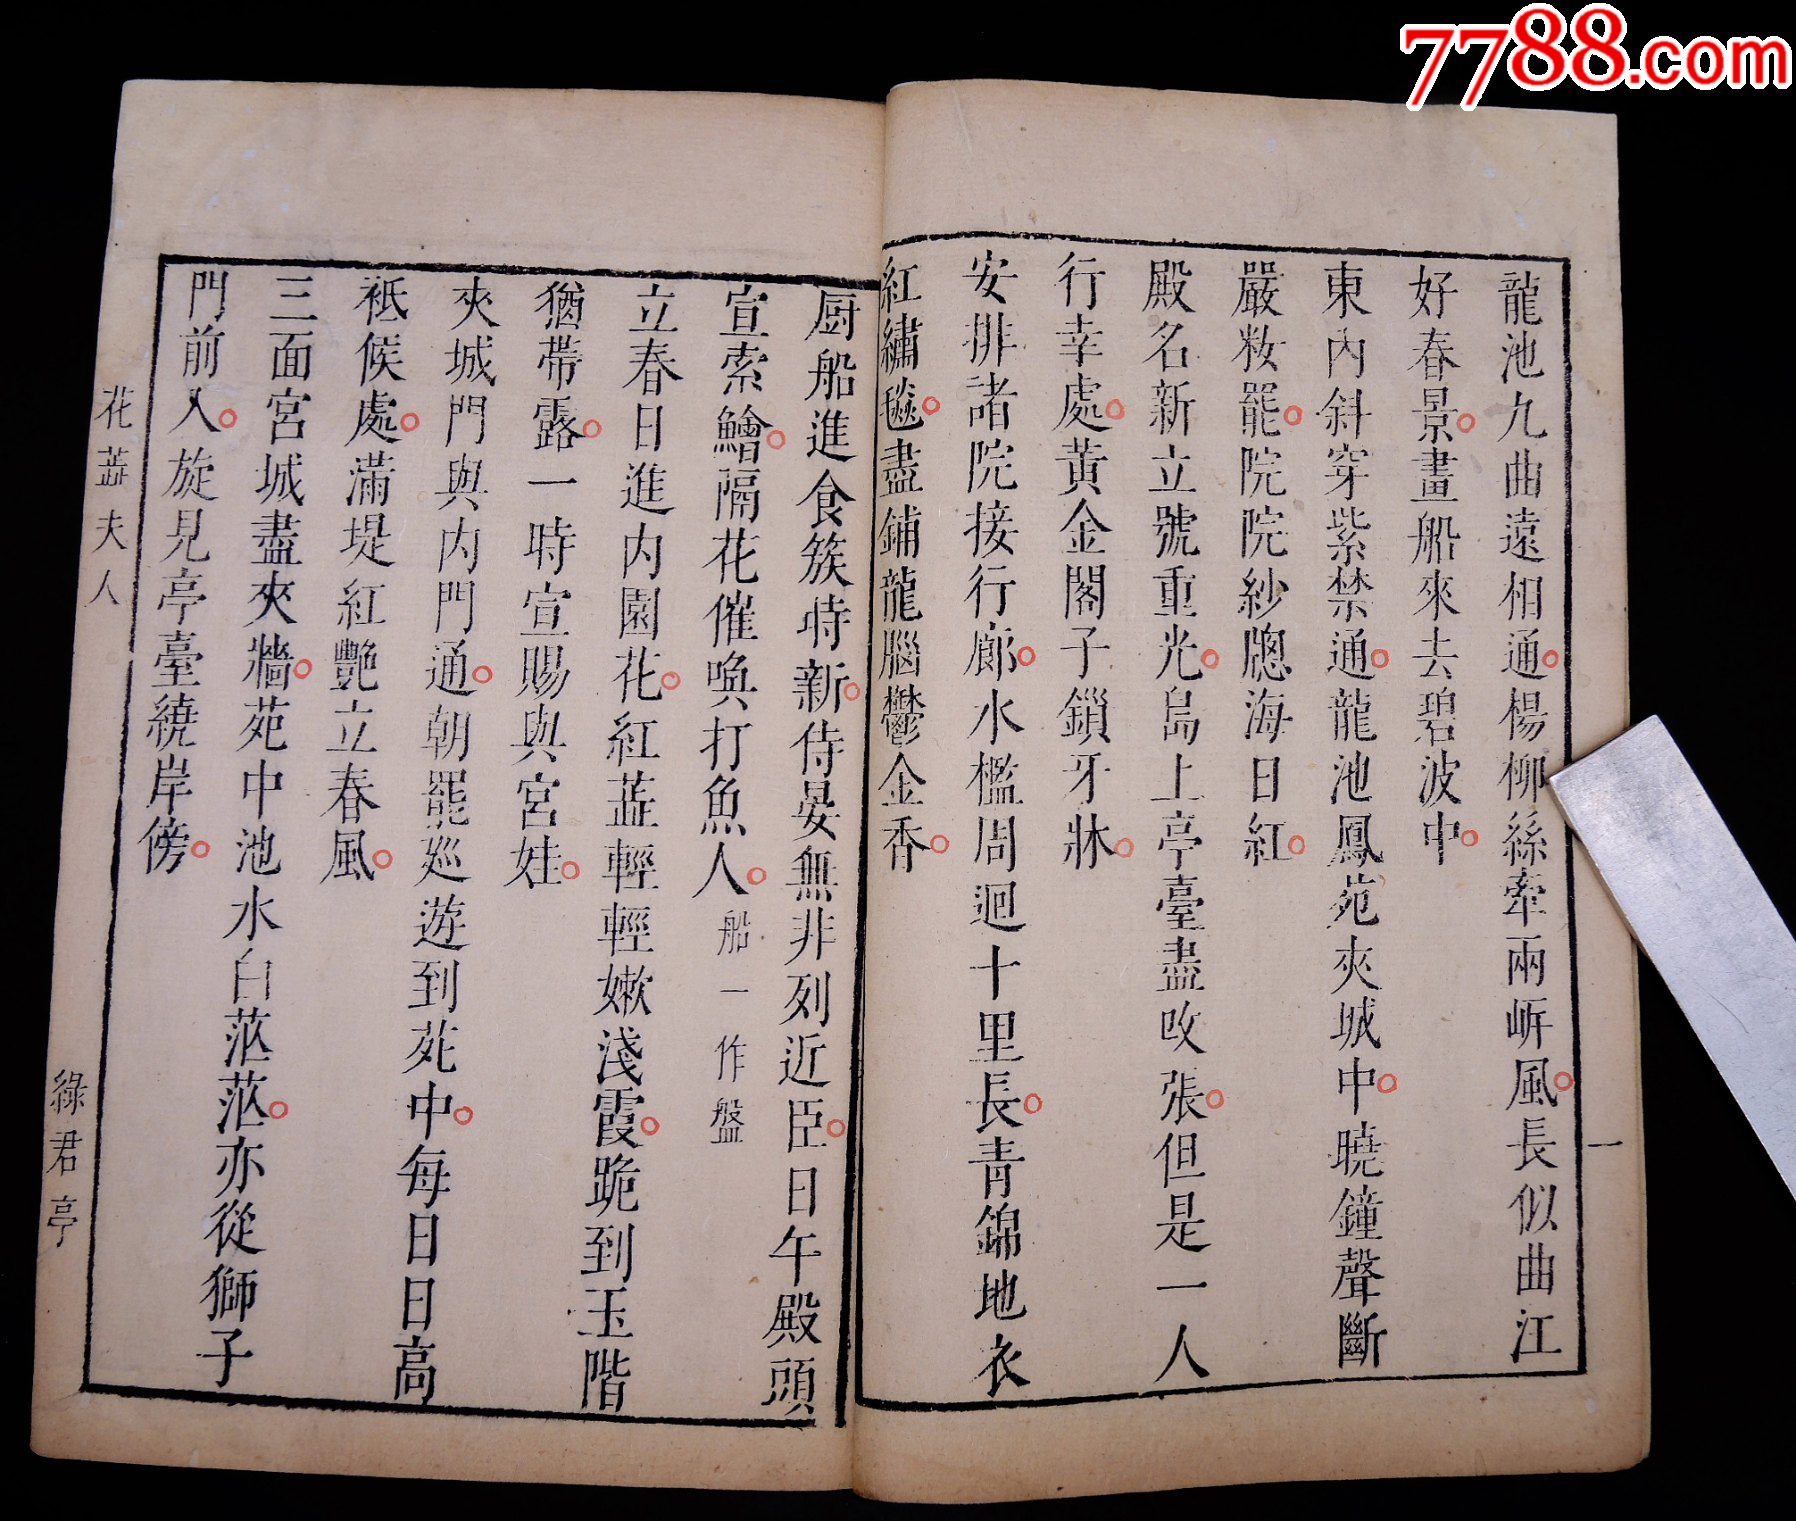 7788.com
龍池九曲遠相通楊柳絲牽兩岍風長似曲江
好春景畫船來去碧波中
東內斜穿紫禁通龍池鳳苑夾城中曉鐘聲斷
嚴妝罷院院紗牕海日紅
殿名新立號重光島上亭臺盡改張但是一人
行幸處黃金閣子鎖牙牀
安排諸院接行廊水檻周迴十里長青錦地衣
紅繡毯盡鋪龍腦鬱金香
一
厨船進食簇時新侍晏無非列近臣日午殿頭
宣索鱠隔花催喚打魚人船一作盤
立春日進內園花紅蕋輕輕嫩淺霞跪到玉階
猶帶露一時宣賜與宮娃
夾城門與內門通朝罷廵遊到苑中每日日高
祗候處滿堤紅艷立春風
三面宮城盡夾牆苑中池水白茫茫亦從獅子
門前入旋見亭臺繞岸傍
花蕋夫人
綠君亭